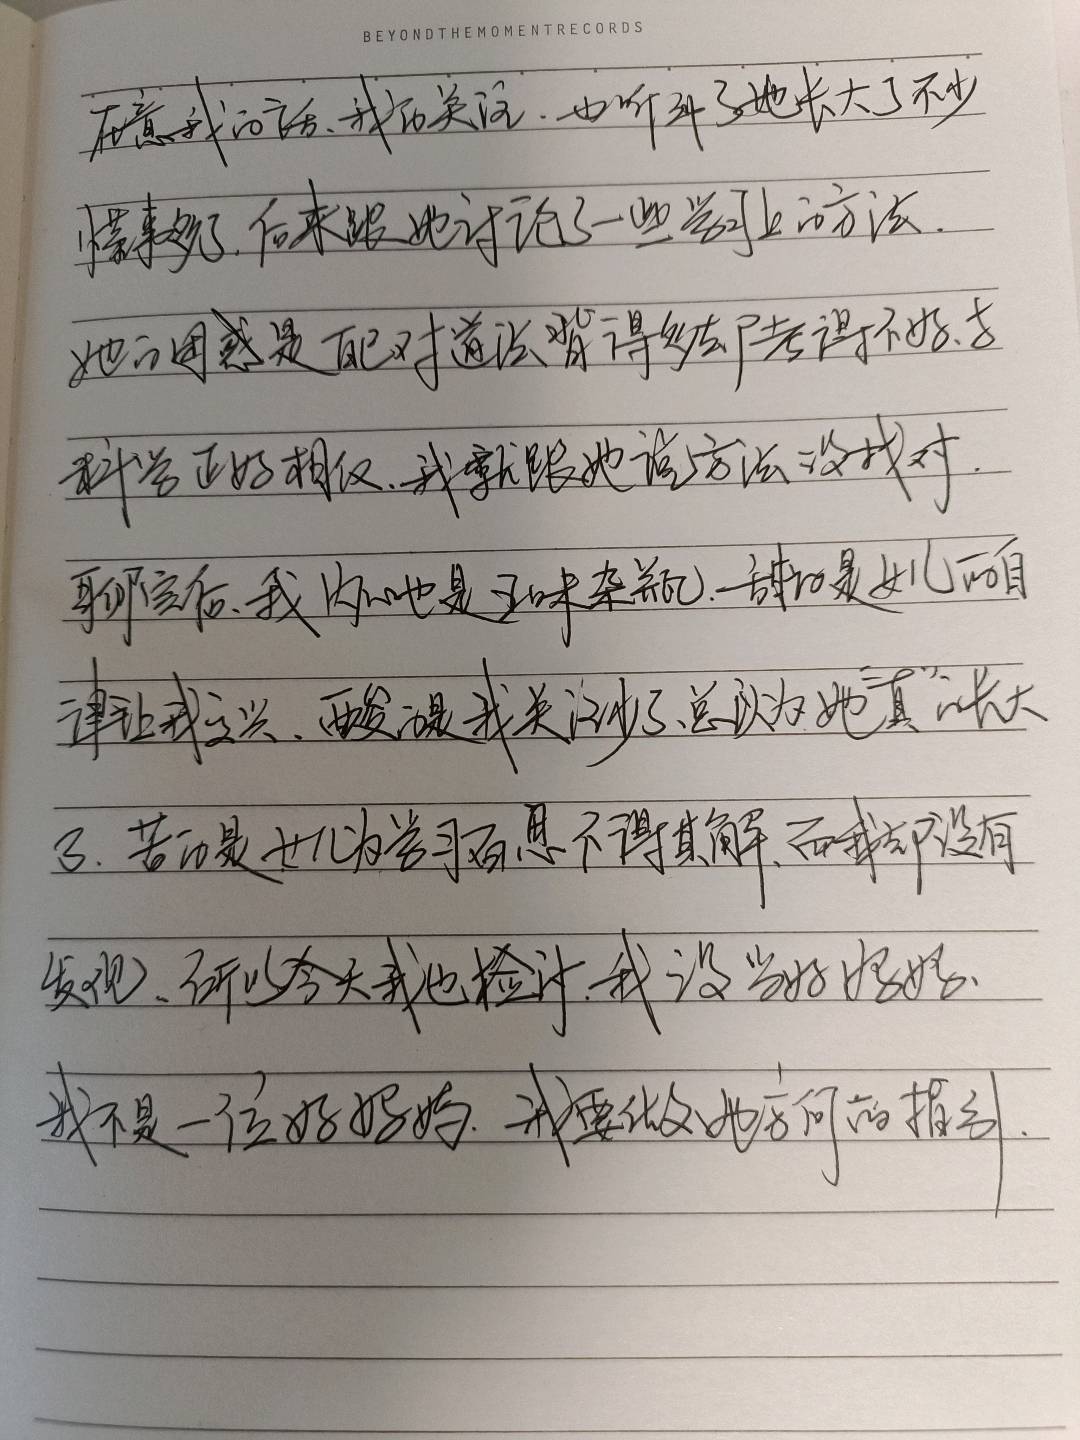 BEYONDTHEMOMENTRECORDS
在意我的话、我的关注.也听到了她长大了不少
懂事多了.后来跟她讨论了一些学习上的方法.
她的困惑是对道法背得多却考得不好、
科学正好相仪、我就跟她说方法没找对.
聊完后、我内心也是五味杂瓶.甜的是女儿的自
律让我高兴、酸的是我关注少了、总以为她"真"的长大
了.苦的是女儿为学习百思不得其解、而我却没有
发现、所以今天我也检讨.我没当好妈妈、
我不是一位好妈妈.我要做她方向的指引.